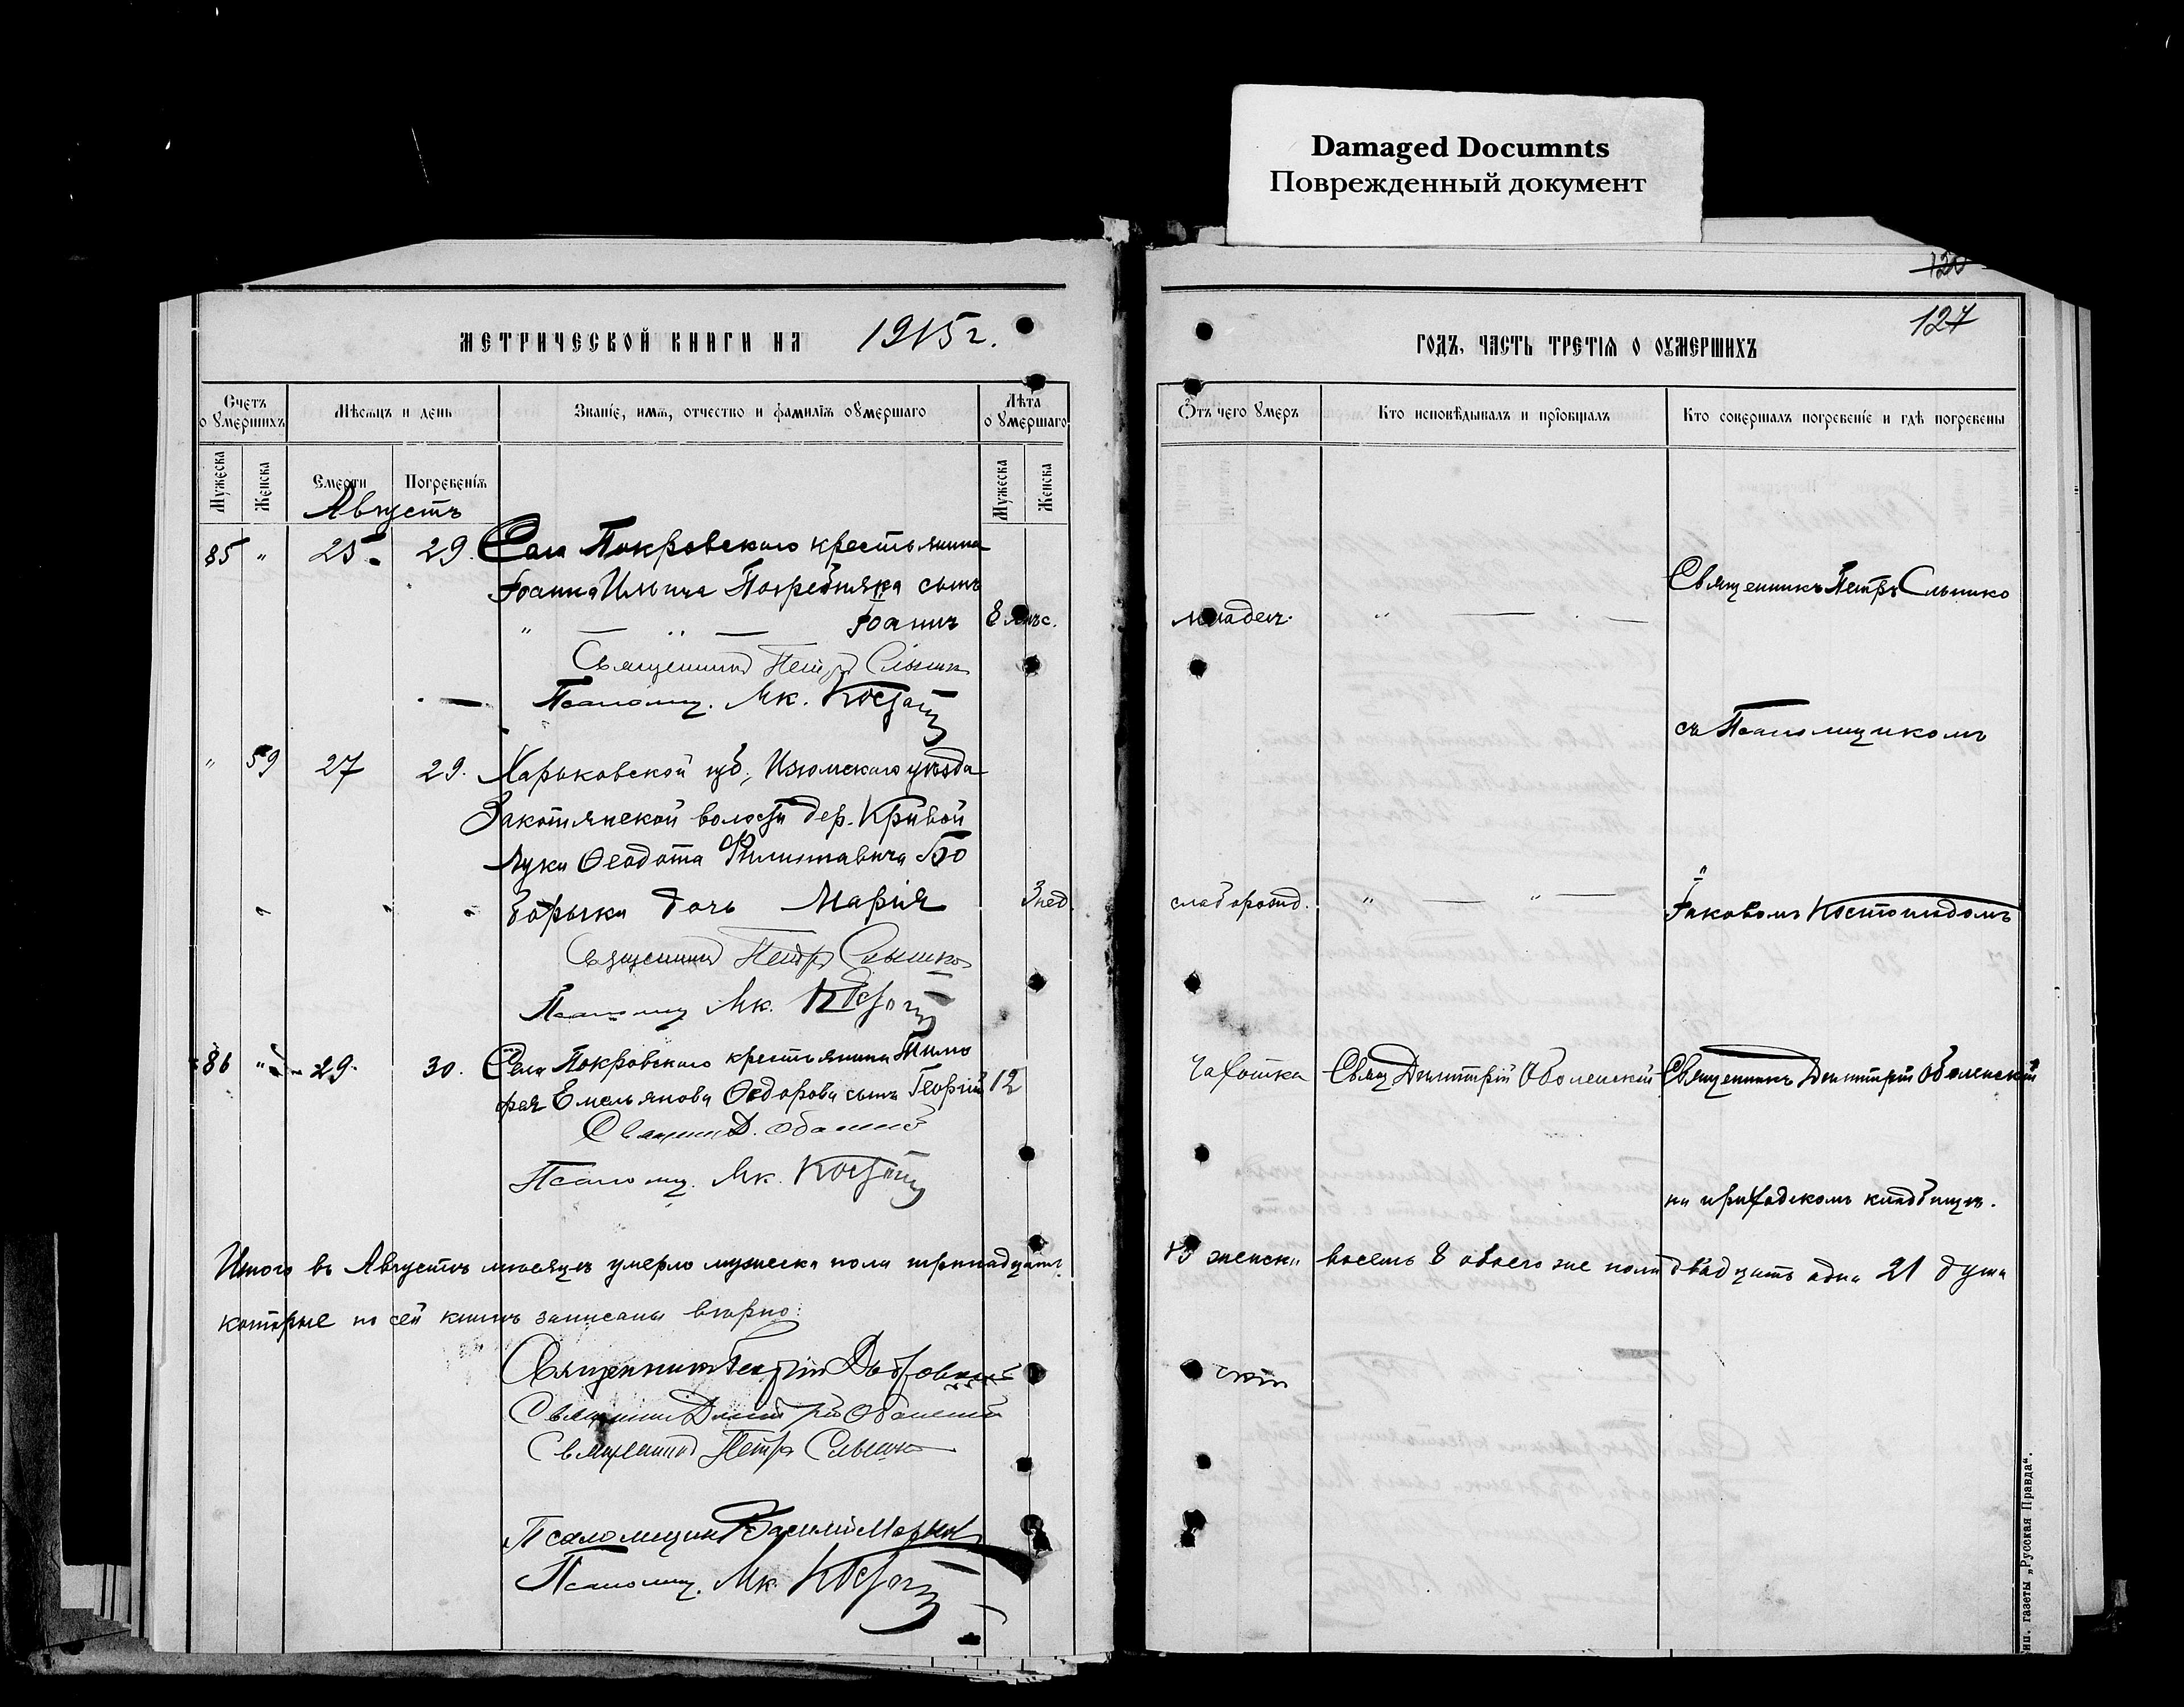 Damaged Documnts
Поврежденный документ
МЕТРИЧЕСКОЙ КНИГИ НА 1915 г.
Счетъ оумершихъ
Мѣсяцъ и день
Званіе, имя, отчество и фамилія оумершаго
Лѣта оумершаго
Мужеска
Женска
Смерти
Погребенія
Мужеска
Женска
Августъ
85 " 25 29. Села Покровскаго крестьянина
Іоанна Ильича Погребняка сынъ
" Іоаннъ 8 мѣс.
Священникъ Петръ
Псаломщ. Іак. Кост
" 59 27 29. Харьковской губ., Изюмскаго уѣзда
Закотянской волости дер. Кривой
Луки Ѳеодота Филипповича Бо
дочь Марія 3 нед.
Священникъ Петръ
Псаломщ. Іак. Кост
86 " 29. 30. Села Покровскаго крестьянина Тимо
фея Емельянова Ѳедорова сынъ Георгій 12
Священ. Д. Оболенскій
Псаломщ. Іак. Кост
Итого въ Августѣ мѣсяцѣ умерло мужеска пола тринадцать
которые по сей книгѣ записаны вѣрно:
Священникъ Георгій
Священник Димитрій Оболенскій
Священникъ Петръ
Псаломщик Василій
Псаломщ. Іак. Кост
120
127
ГОДЪ, ЧАСТЬ ТРЕТІЯ О ОУМЕРШИХЪ
Отъ чего умеръ
Кто исповѣдывалъ и пріобщалъ
Кто совершалъ погребеніе и гдѣ погребены
Священникъ Петръ
младен. "
съ Псаломщикомъ
слаборожд. " "
Іаковомъ
Чахотка Свящ Димитрій Оболенскій Священникъ Димитрій Оболенскій
на приходскомъ кладбищѣ.
13 женска восемь 8 обоего же пола двадцать одна 21 душа
скій
тип. газеты „Русская Правда“.